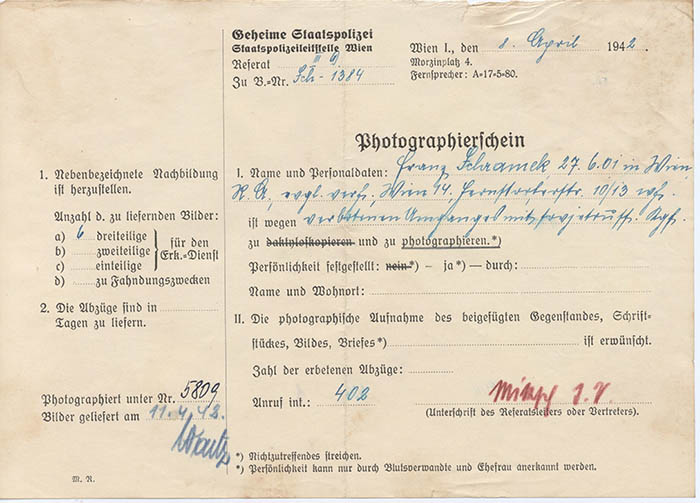 Geheime Staatspolizei
Staatspolizeileitstelle Wien
Referat II
Zu B.=Nr. Sch-1384
Wien I., den 8. April 1942.
Morzinplatz 4.
Fernsprecher: A=17=5=80.
Photographierschein
1. Nebenbezeichnete Nachbildung
ist herzustellen.
Anzahl d. zu liefernden Bilder:
a) 6 dreiteilige
b) zweiteilige
c) einteilige
für den
Erk.=Dienst
d) zu Fahndungszwecken
2. Die Abzüge sind in
Tagen zu liefern.
Photographiert unter Nr. 5809
Bilder geliefert am 11.4.42.
M. R.
I. Name und Personaldaten: Franz Schramek, 27.6.01 in Wien
evgl. verh., Wien 14. 10/13 wh.
ist wegen verbotenen Umganges mit sowjetruss. Kgf.
zu daktyloskopieren und zu photographieren.*)
Persönlichkeit festgestellt: nein*) – ja*) – durch:
Name und Wohnort:
II. Die photographische Aufnahme des beigefügten Gegenstandes, Schrift-
stückes, Bildes, Briefes*) ist erwünscht.
Zahl der erbetenen Abzüge:
Anruf int.: 402
(Unterschrift des Referatsleiters oder Vertreters).
*) Nichtzutreffendes streichen.
*) Persönlichkeit kann nur durch Blutsverwandte und Ehefrau anerkannt werden.